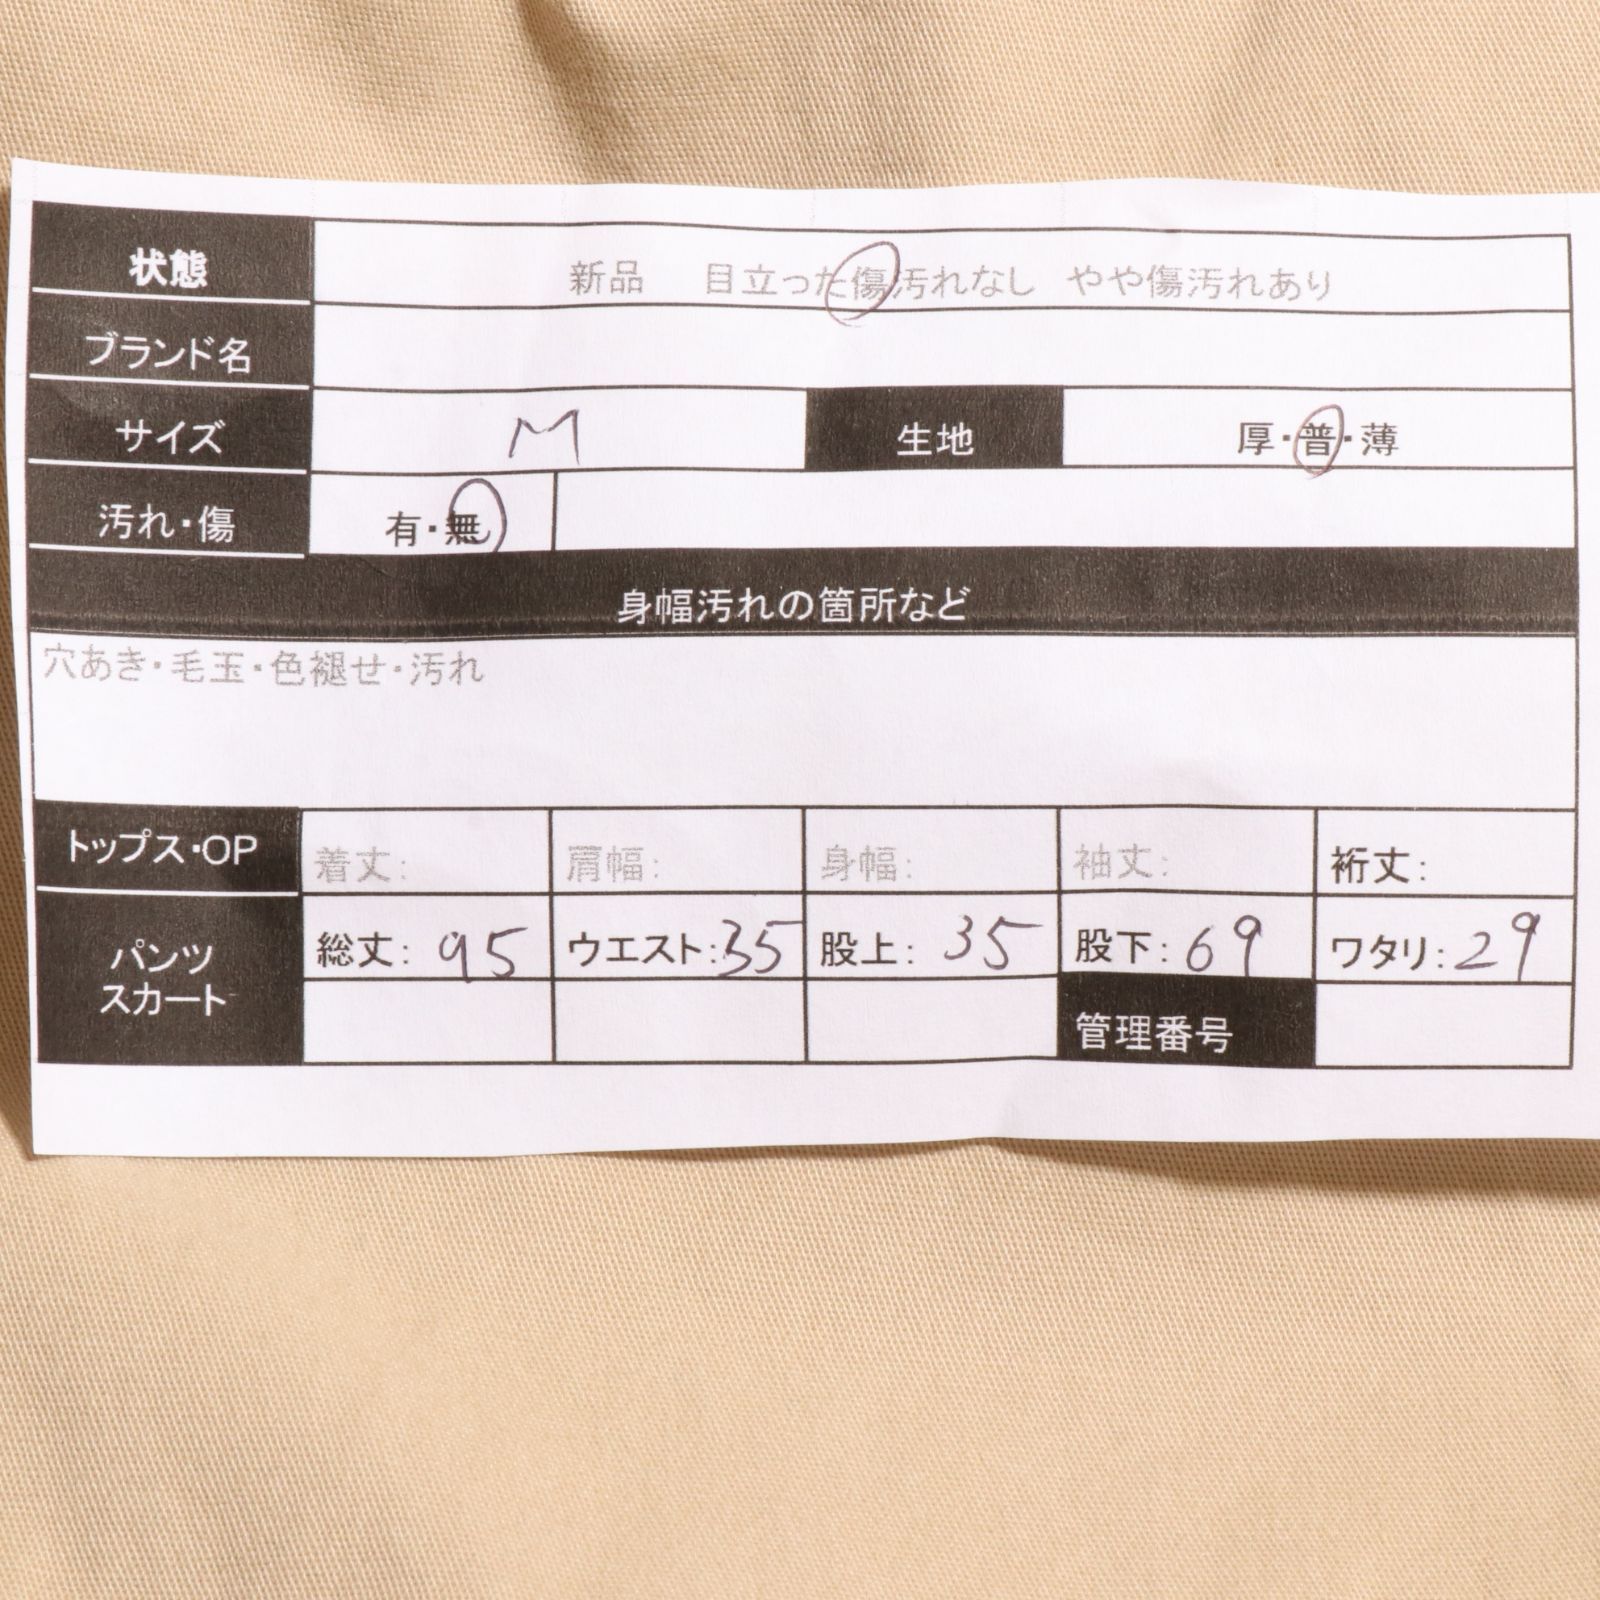 状態 新品 目立った傷汚れなし やや傷汚れあり
ブランド名
サイズ M 生地 厚・普・薄
汚れ・傷 有・無
身幅汚れの箇所など
穴あき・毛玉・色褪せ・汚れ
トップス・OP 着丈: 肩幅: 身幅: 袖丈: 裄丈:
パンツ スカート 総丈: 95 ウエスト: 35 股上: 35 股下: 69 ワタリ: 29
管理番号